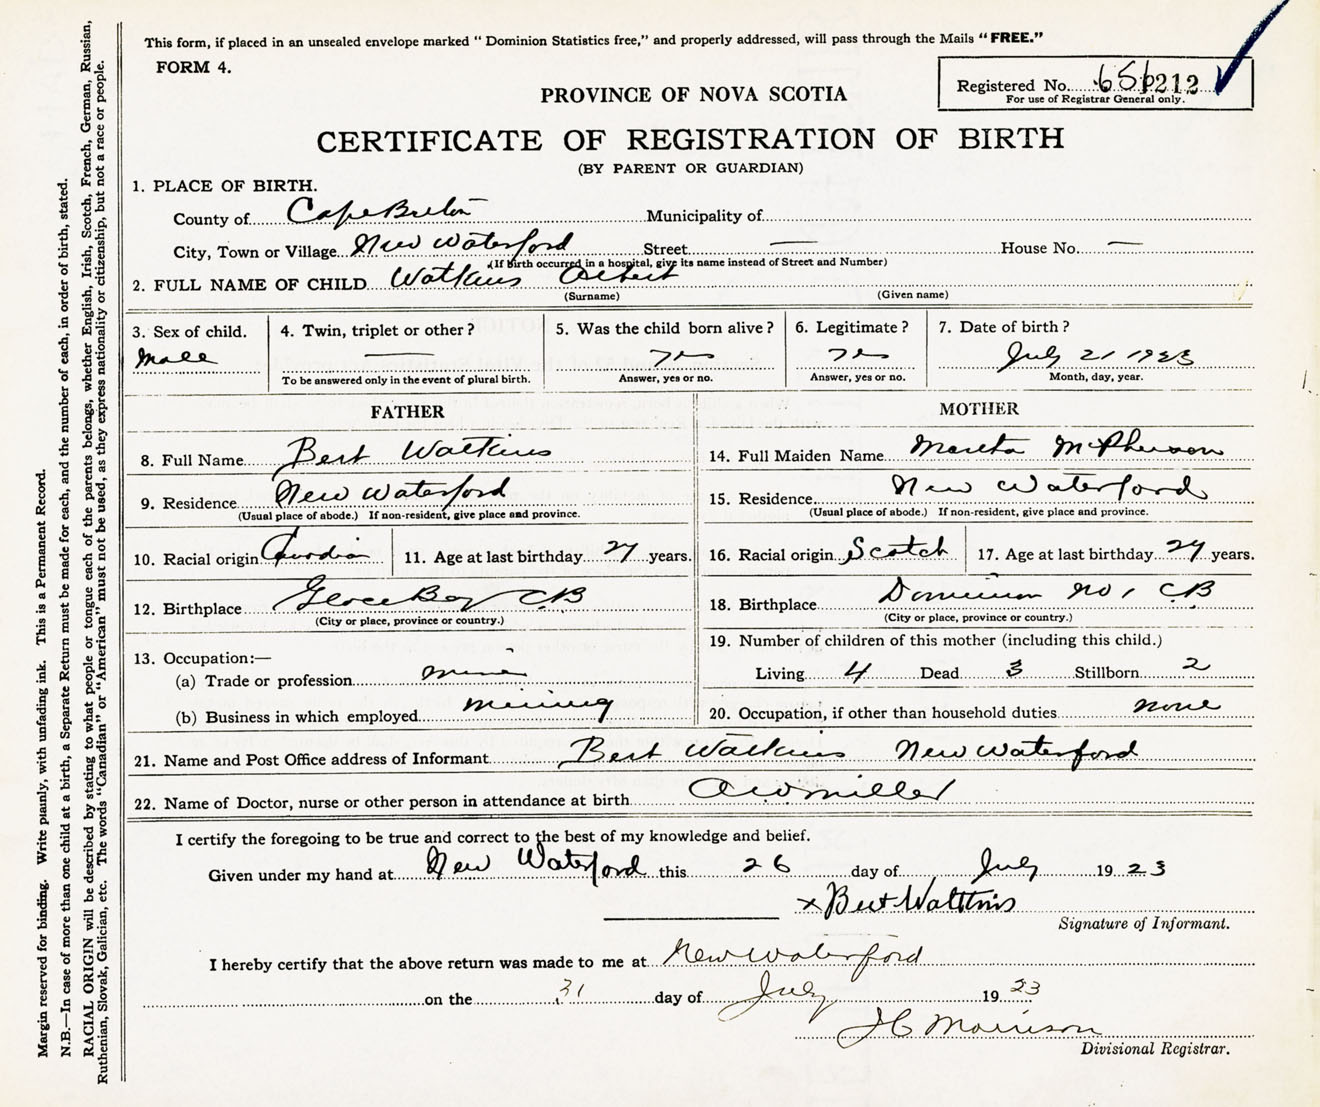 This form, if placed in an unsealed envelope marked " Dominion Statistics free," and properly addressed, will pass through the Mails "FREE."
FORM 4.
Registered No. 212
For use of Registrar General only.
PROVINCE OF NOVA SCOTIA
CERTIFICATE OF REGISTRATION OF BIRTH
(BY PARENT OR GUARDIAN)
1. PLACE OF BIRTH.
County of Cape Breton Municipality of
City, Town or Village New Waterford Street — House No. —
(If Birth occurred in a hospital, give its name instead of Street and Number)
2. FULL NAME OF CHILD Watkins Albert
(Surname) (Given name)
3. Sex of child. 4. Twin, triplet or other? 5. Was the child born alive? 6. Legitimate? 7. Date of birth?
Male — yes yes July 21 1923
To be answered only in the event of plural birth. Answer, yes or no. Answer, yes or no. Month, day, year.
FATHER
8. Full Name Bert Watkins
9. Residence New Waterford
(Usual place of abode.) If non-resident, give place and province.
10. Racial origin 11. Age at last birthday 27 years.
12. Birthplace Glace Bay C.B
(City or place, province or country.)
13. Occupation:—
(a) Trade or profession
(b) Business in which employed mining
MOTHER
14. Full Maiden Name McPherson
15. Residence New Waterford
(Usual place of abode.) If non-resident, give place and province.
16. Racial origin Scotch 17. Age at last birthday years.
18. Birthplace Dominion No 1 CB
(City or place, province or country.)
19. Number of children of this mother (including this child.)
Living 4 Dead 3 Stillborn 2
20. Occupation, if other than household duties none
21. Name and Post Office address of Informant Bert Watkins New Waterford
22. Name of Doctor, nurse or other person in attendance at birth A W Miller
I certify the foregoing to be true and correct to the best of my knowledge and belief.
Given under my hand at New Waterford this 26 day of July 1923
x Bert Watkins
Signature of Informant.
I hereby certify that the above return was made to me at New Waterford
on the 31 day of July 1923
J C Morrison
Divisional Registrar.
Margin reserved for binding. Write plainly, with unfading ink. This is a Permanent Record.
N.B.—In case of more than one child at a birth, a Separate Return must be made for each, and the number of each, in order of birth, stated.
RACIAL ORIGIN will be described by stating to what people or tongue each of the parents belongs, whether English, Irish, Scotch, French, German, Russian,
Ruthenian, Slovak, Galician, etc. The words "Canadian" or "American" must not be used, as they express nationality or citizenship, but not a race or people.